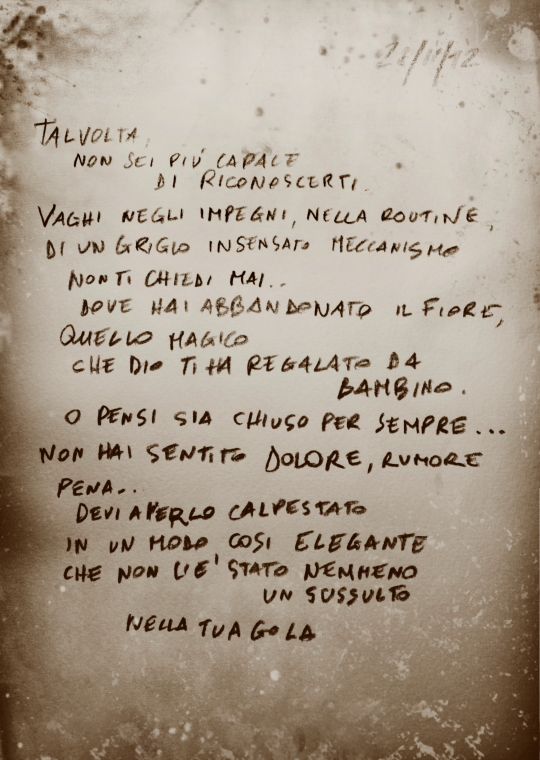 21/11/12
TALVOLTA,
NON SEI PIÙ CAPACE
DI RICONOSCERTI.
VAGHI NEGLI IMPEGNI, NELLA ROUTINE,
DI UN GRIGIO INSENSATO MECCANISMO
NON TI CHIEDI MAI..
DOVE HAI ABBANDONATO IL FIORE,
QUELLO MAGICO
CHE DIO TI HA REGALATO DA
BAMBINO.
O PENSI SIA CHIUSO PER SEMPRE...
NON HAI SENTITO DOLORE, RUMORE
PENA..
DEVI AVERLO CALPESTATO
IN UN MODO COSI ELEGANTE
CHE NON C'E' STATO NEMMENO
UN SUSSULTO
NELLA TUA GOLA